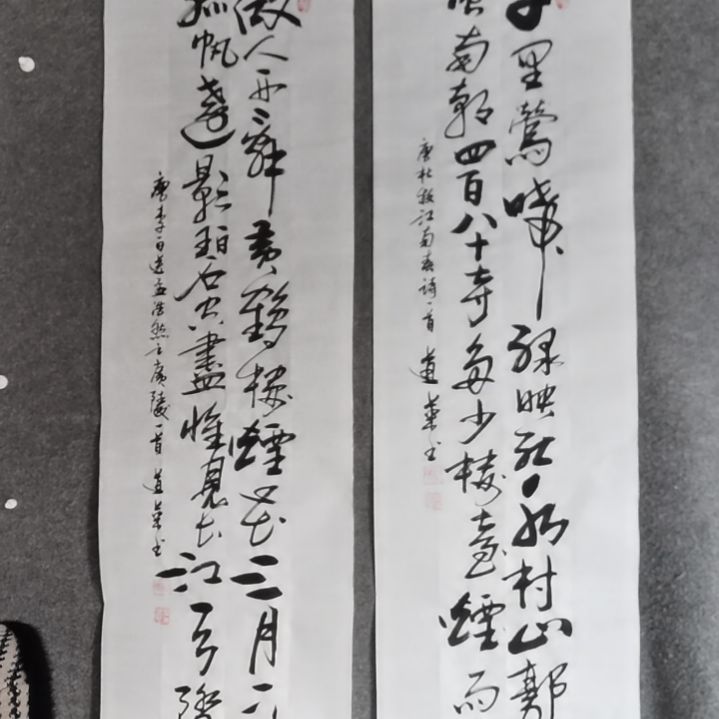 千里鶯啼綠映紅水村山郭
風南朝四百八十寺多少樓臺煙雨
唐杜牧江南春詩一首
故人西辭黃鶴樓煙花三月下
孤帆遠影碧空盡惟見長江天際
唐李白送孟浩然之廣陵一首